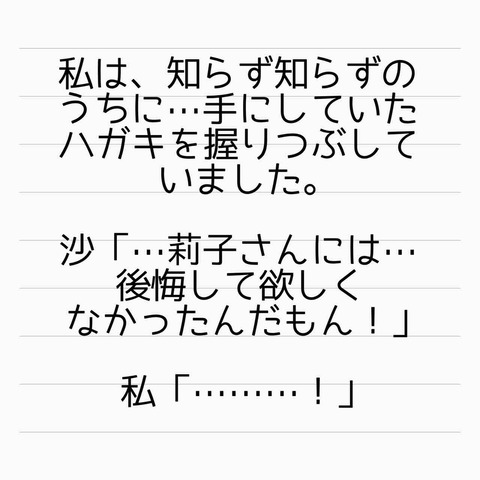 私は、知らず知らずの
うちに…手にしていた
ハガキを握りつぶして
いました。
沙「…莉子さんには…
後悔して欲しく
なかったんだもん！」
私「………！」